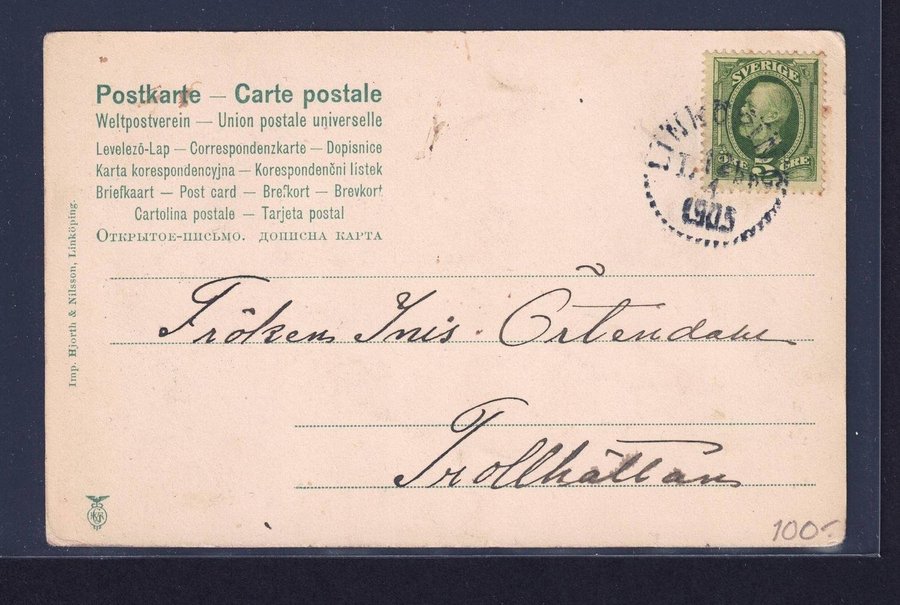 Postkarte — Carte postale
Weltpostverein — Union postale universelle
Levelező-Lap — Correspondenzkarte — Dopisnice
Karta korespondencyjna — Korespondenční lístek
Briefkaart — Post card — Brefkort — Brevkort
Cartolina postale — Tarjeta postal
Открытое-письмо. дописна карта
SVERIGE
5
ÖRE
LINKÖPING
1905
Fröken Inis Örtendahl
Trollhättan
Imp. Hjorth & Nilsson, Linköping.
100:-